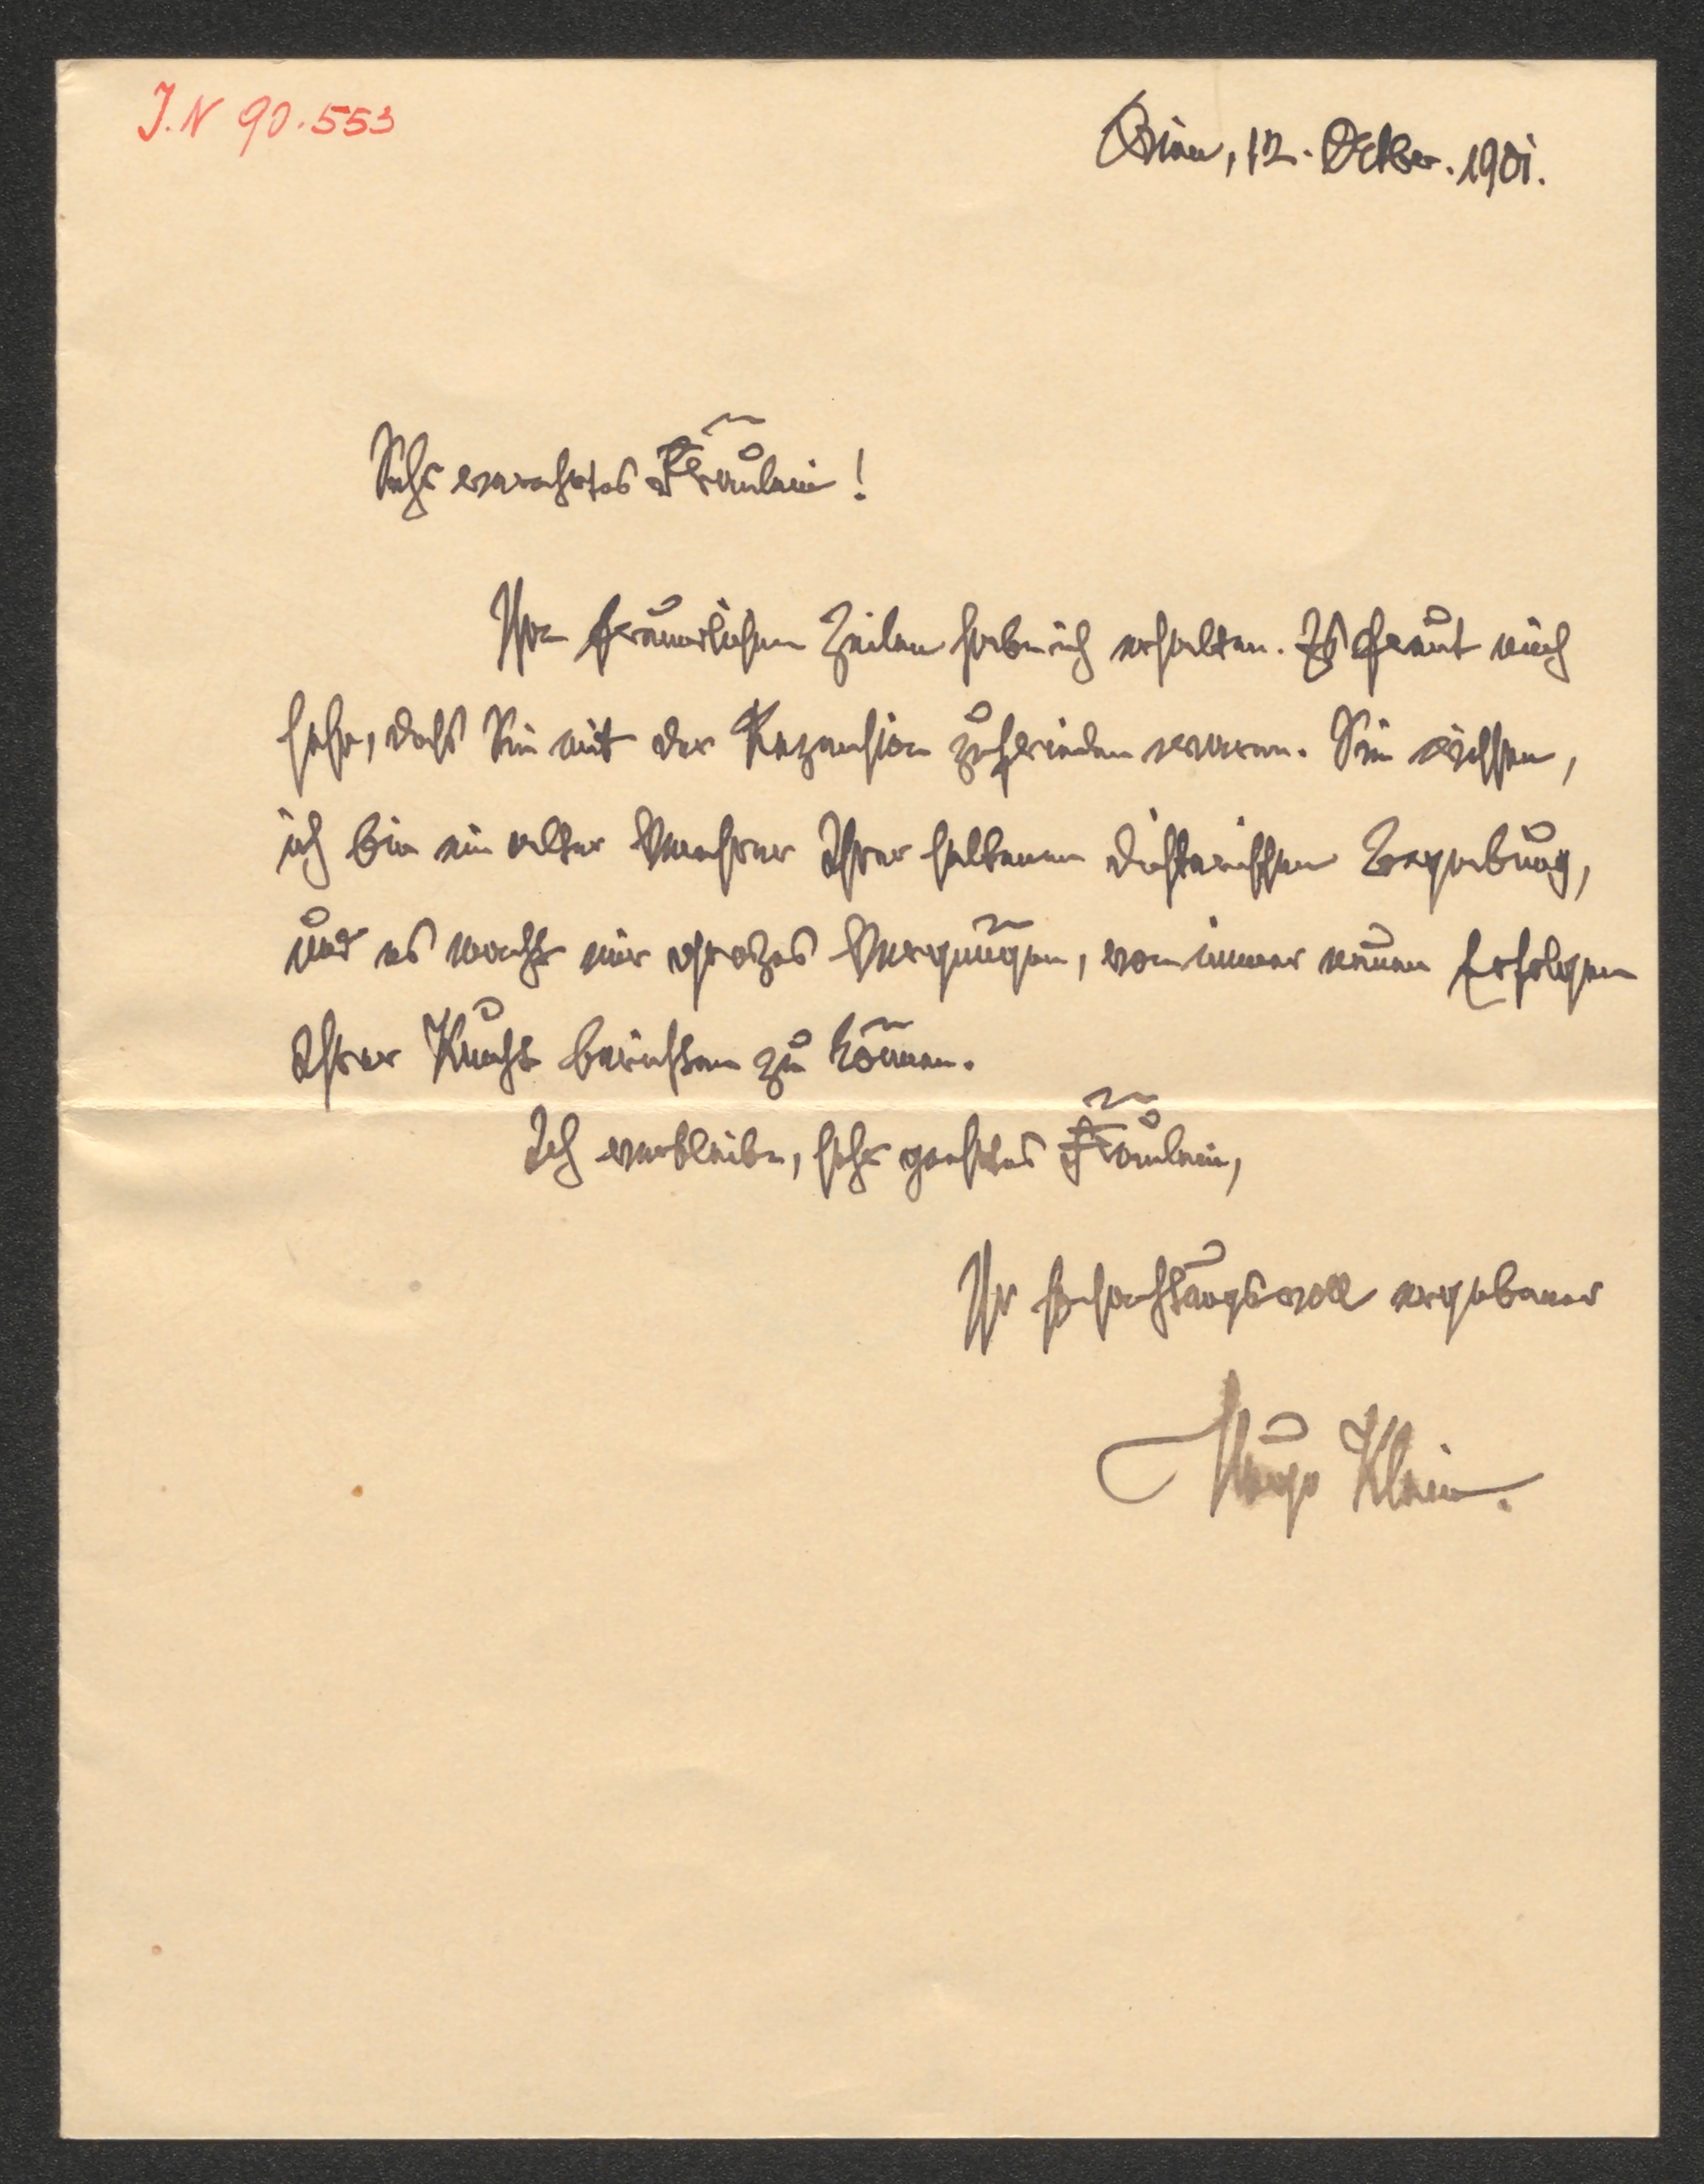 J.N 90.553
Wien, 12. Oktber. 1901.
Sehr verehrtes Fräulein!
Ihre freundlichen Zeilen habe ich erhalten. Es freut mich
sehr, daß Sie mit der Rezension zufrieden waren. Sie wissen,
ich bin ein alter Verehrer Ihrer seltenen dichterischen Begabung,
und es macht mir großes Vergnügen, von immer neuen Erfolgen
Ihrer Kunst berichten zu können.
Ich verbleibe, sehr geehrtes Fräulein,
Ihr hochachtungsvoll ergebener
Hugo Klein.